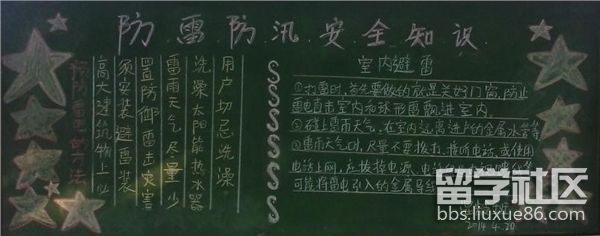 防雷防汛安全知识
预防雷电的方法
高大建筑物上必
须安装避雷装
置防御雷击灾害
雷雨天气尽量少
洗澡太阳能热水器
用户切忌洗澡
室内避雷
①打雷时,首先要做的就是关好门窗,防止
雷电直击室内和球形雷飘进室内
②碰上雷雨天气,在室内远离进户的金属水管等
③雷雨天气时,尽量不要拨打、接听电话,或使用
电话上网,应拔掉电源、电话线
可能将雷电引入的金属导线
2014.4.20
留学社区
bbs.liuxue86.com